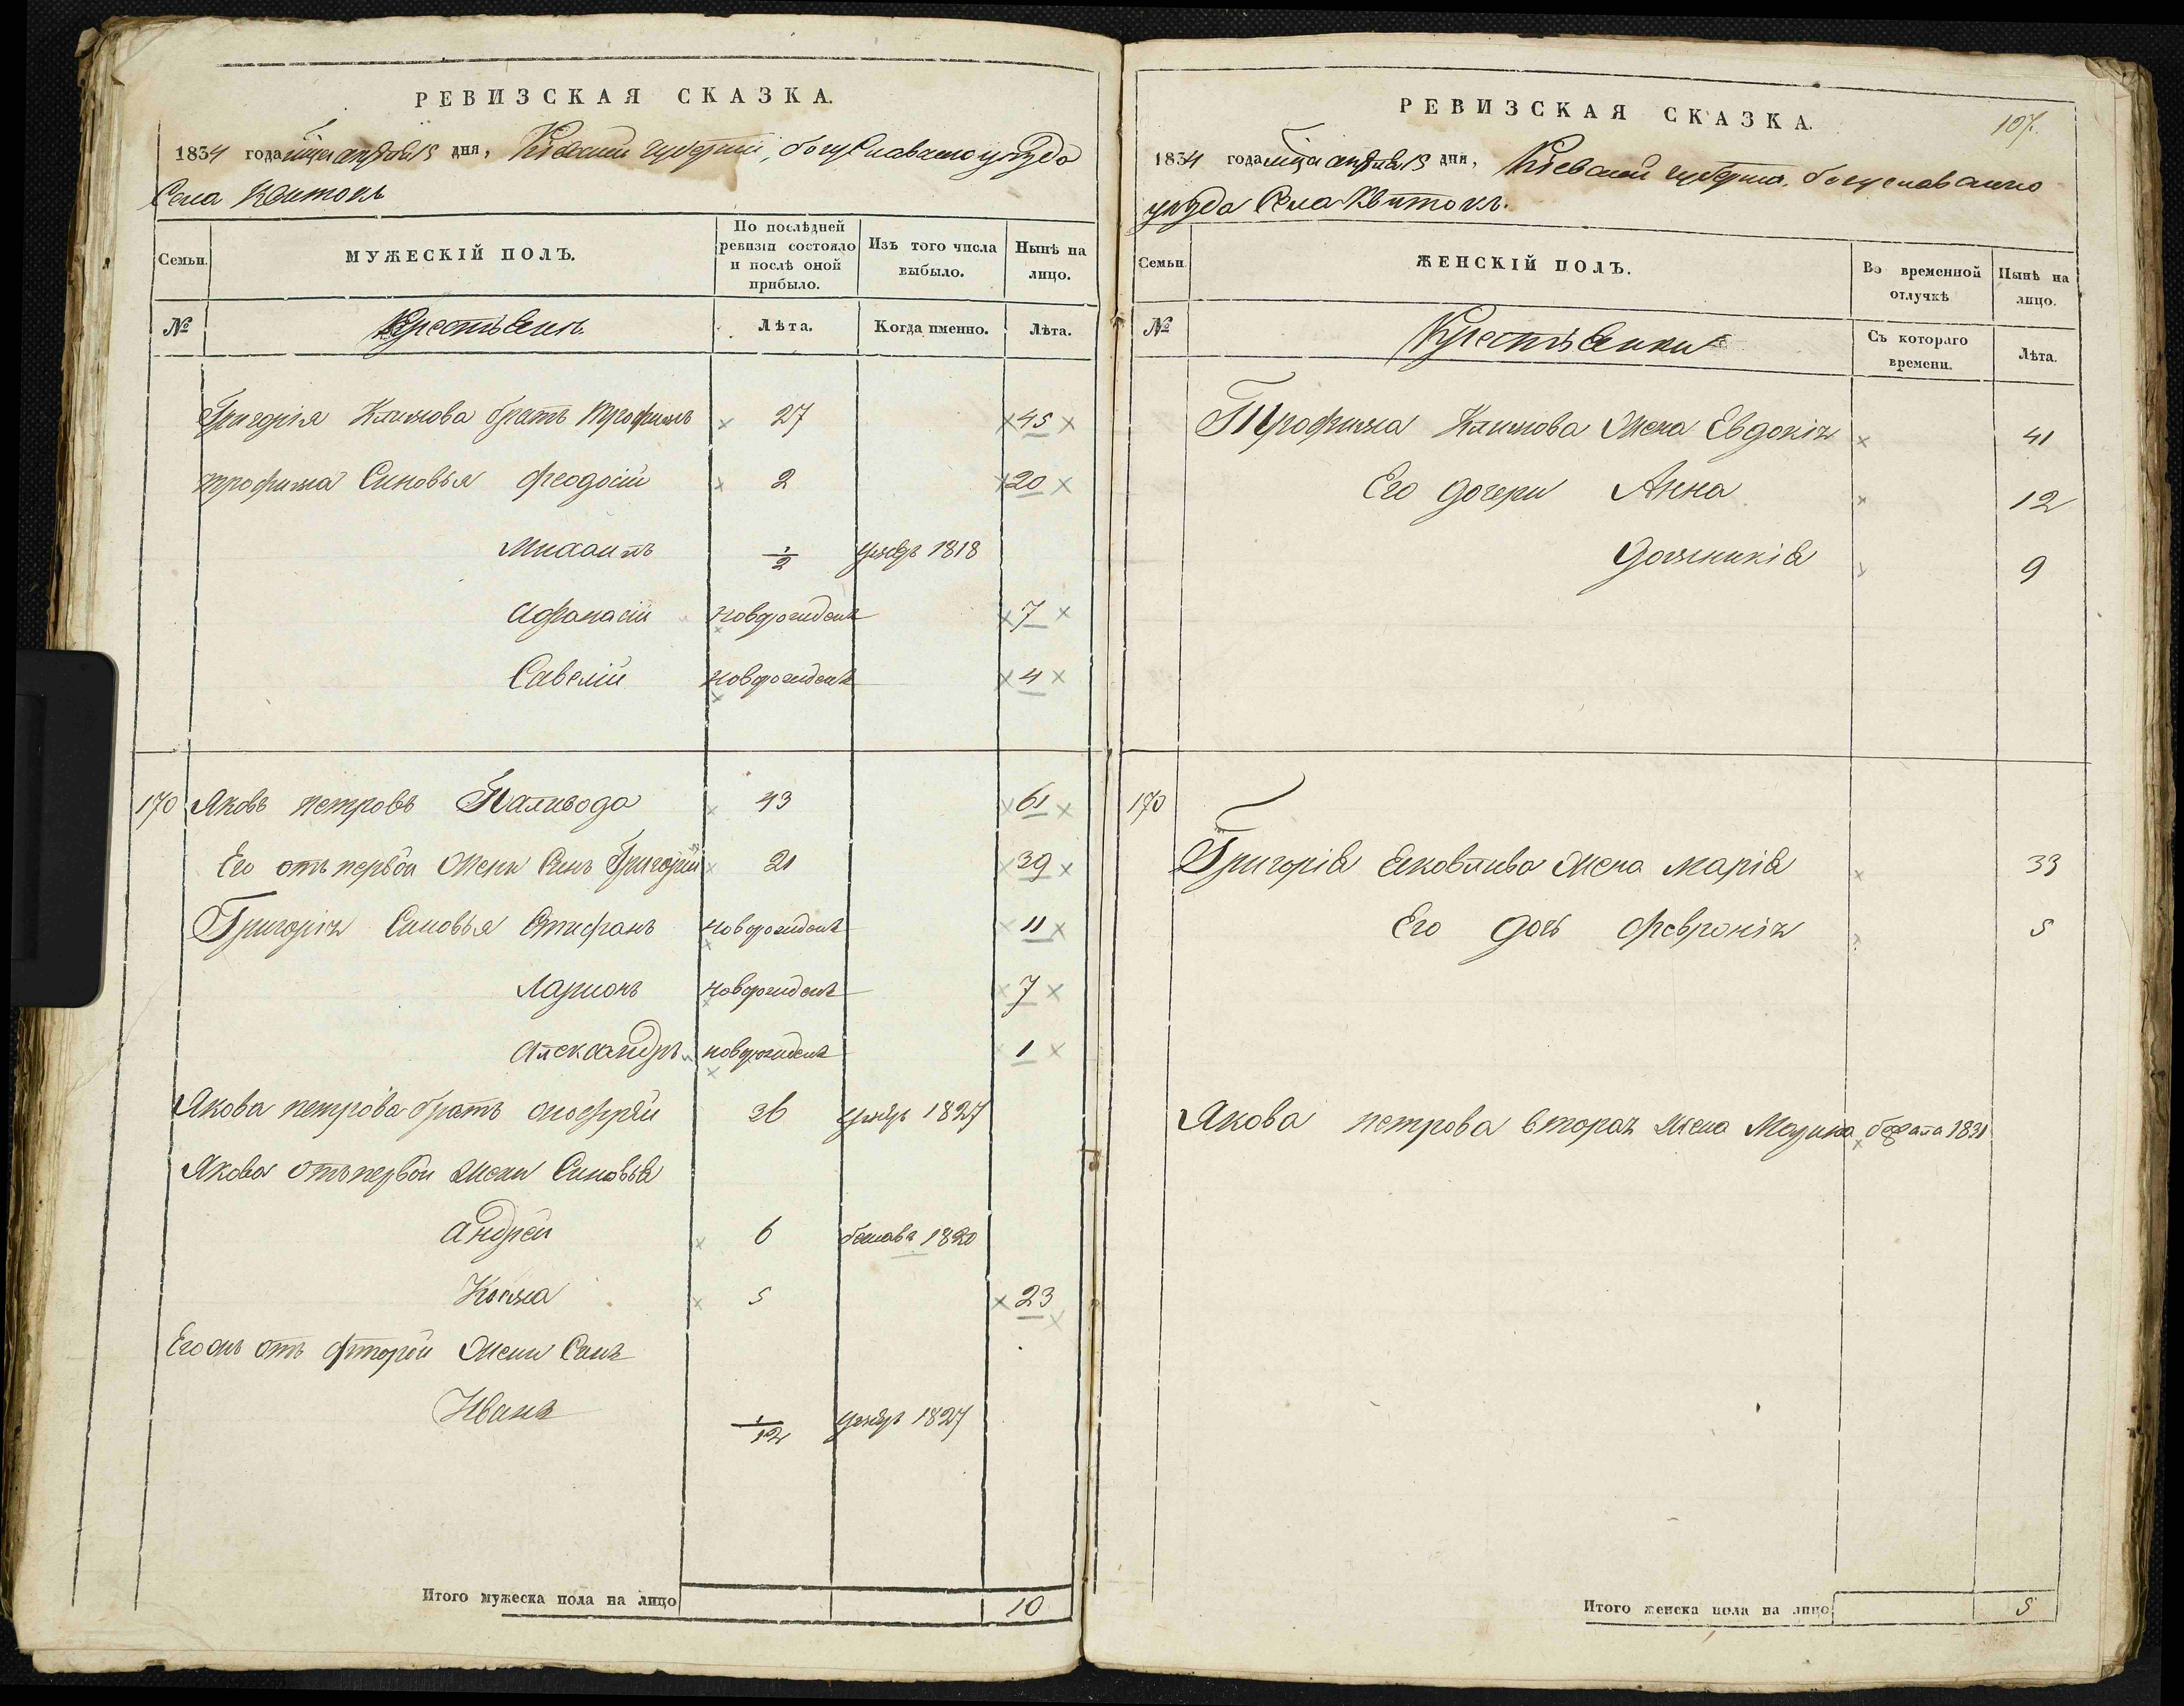 РЕВИЗСКАЯ СКАЗКА.
1834 года мца апреля 15 дня, Кіевской губерніи, богуславского уѣзда
Села Квитокъ
Семьи.
МУЖЕСКІЙ ПОЛЪ.
По послѣдней ревизіи состояло и послѣ оной прибыло.
Изъ того числа выбыло.
Нынѣ на лицо.
№
Крестьяне
Лѣта.
Когда именно.
Лѣта.
Григорія Климова братъ трофимъ 27 45
трофима Сыновья феодосій 2 20
Михаилъ 1/2 умеръ 1818
Афанасій новорожденъ 7
Савелій новорожденъ 4
170 Яковъ петровъ Паливода 43 61
Его отъ первой жены Сынъ Григорій 21 39
Григорія Сыновья Стефанъ новорожденъ 11
Ларионъ новорожденъ 7
Александръ новорожденъ 1
Якова петрова братъ онофрей 36 умеръ 1827
Якова отъ первой жены Сыновья
андрей 6 бежавъ 1820
Косма 5 23
Его онъ отъ фторой жены Сынъ
Иванъ 1/12 умеръ 1827
Итого мужеска пола на лицо 10
РЕВИЗСКАЯ СКАЗКА.
107.
1834 года мца апреля 15 дня, Кіевской губерніи, богуславского
уѣзда Села Квитокъ.
Семьи.
ЖЕНСКІЙ ПОЛЪ.
Во временной отлучкѣ
Нынѣ на лицо.
№
Крестьянки
Съ котораго времени.
Лѣта.
Трофима Климова жена Евдокія 41
Его дочери Анна 12
Домникія 9
170
Григорія Яковлива жена марія 33
Его дочь февронія 5
Якова петрова вторая жена Марина бежала 1831
Итого женска пола на лицо 5